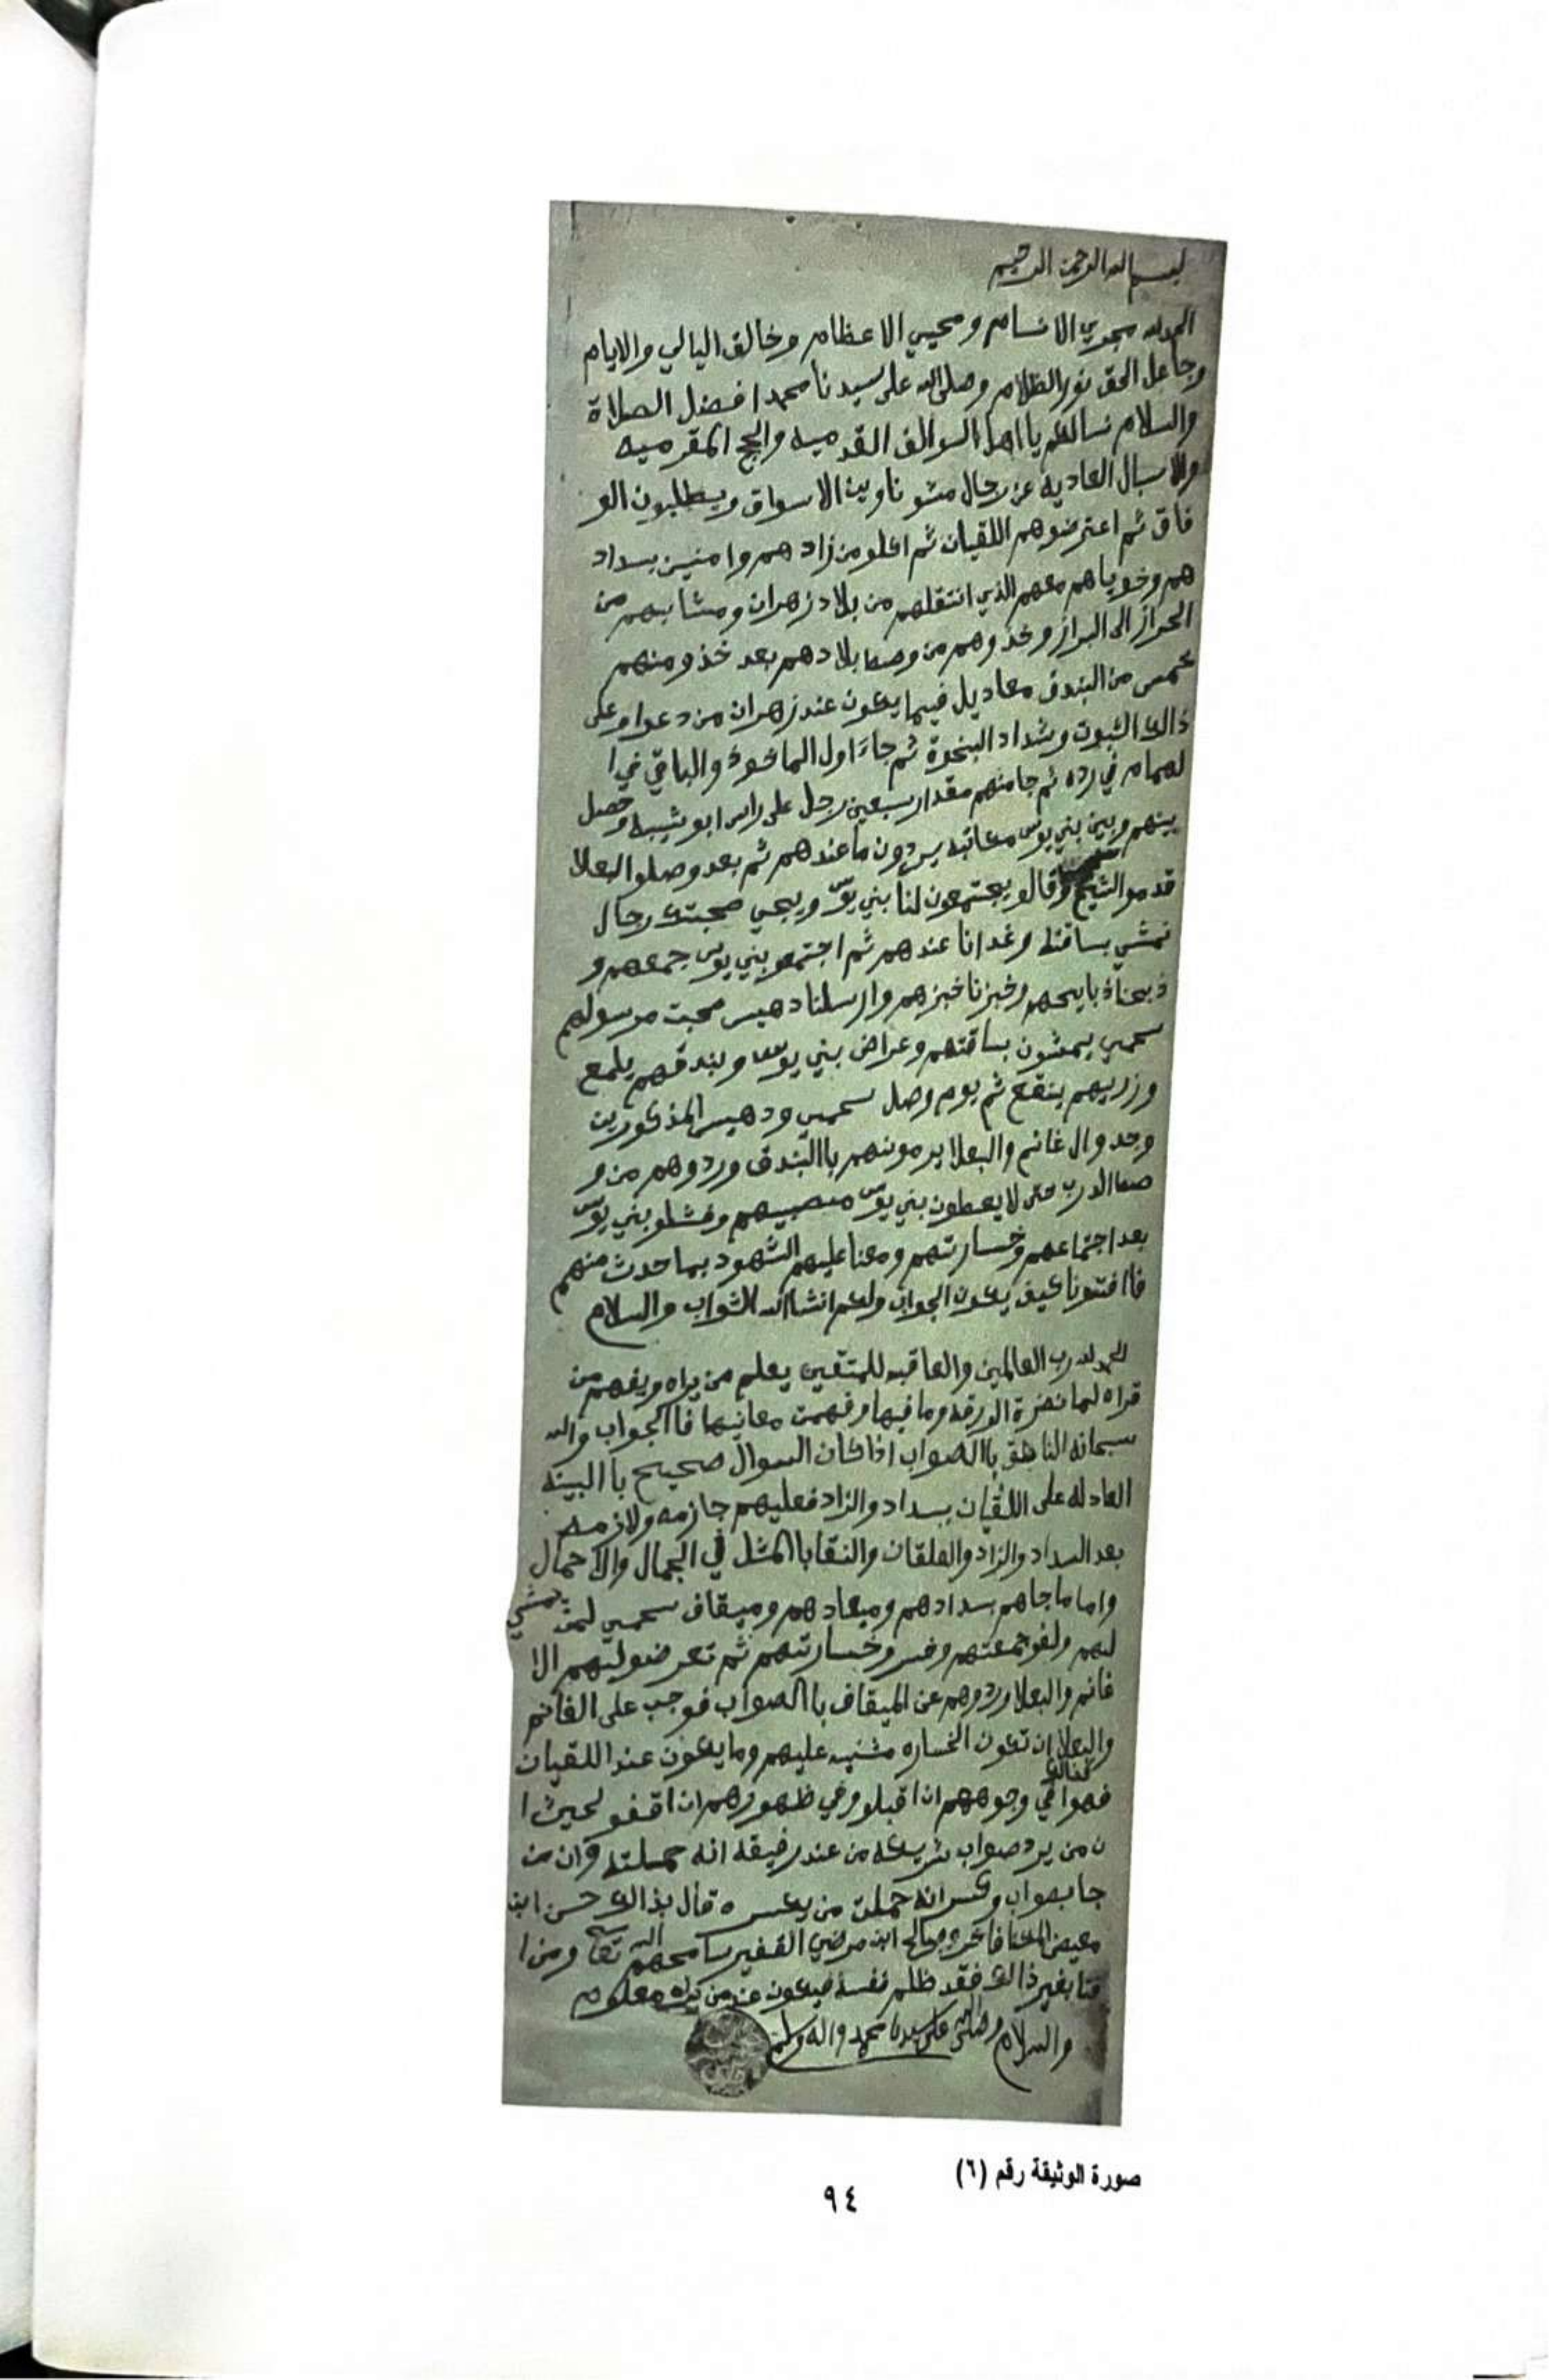 بسم الله الرحمن الرحيم
الحمدلله مجري الانسام ومحيي الاعظام وخالق اليالي والايام
وجاعل الحق نور الظلام وصلى الله على سيدنا محمد افضل الصلاة
والسلام نسالكم يا اهل السوالف القدميه والحج المقرميه
والاسبال العادية عن رجال مشو ناوين الاسواق ويطلبون الو
فاق ثم اعترضوهم اللقيان ثم اكلو من زادهم وامنين بسداد
هم وخوياهم معهم الذي انتقلهم من بلاد زهران ومشا بهم من
الحراز الى البراز وخذوهم من وصط بلادهم بعد خذو منهم
خمس من البندق معاديل فيما يكون عند زهران من دعوا وعلى
ذالك الثبوت وشداد البخوة ثم جاء اول الماخوذ والباقي في ا
لهمام في رده ثم جا منهم مقدار سبعين رجل على راس ابو شيبه وحصل
بينهم وبين بني يوس معاتبه يردون ما عندهم ثم بعد وصلو البعلا
قدمو الشيخ وقالو يجتمعون لنا بني يوس ويجي صحبتك رجال
نمشي بساقته وغدانا عندهم ثم اجتمعو بني يوس جمعهم و
ذبحنا ذبايحهم وخبزنا خبزهم وارسلنا دهيس صحبت مرسولهم
سحمي يمشون بساقتهم وعراض بني يوس وبندقهم يلمع
وزريهم ينقع ثم يوم وصل سحمي ودهيس المذكورين
وجدو ال غانم والبعلا يرمونهم باالبندق وردوهم من و
صط الدرب حتى لا يعطون بني يوس منصيهم وفشلو بني يوس
بعد اجتماعهم وخسارتهم ومعنا عليهم الشهود بما حدث منهم
فاافتونا كيف يكون الجواب ولكم انشاالله الثواب والسلام
الحمدلله رب العالمين والعاقبه للمتقين يعلم من يراه ويفهم من
قراه لما نضرة الورقه وما فيها وفهمت معانيها فاالجواب والله
سبحانه الناطق باالصواب اذا كان السوال صحيح باالبينه
العادله على اللقيان بسداد والزاد فعليهم جازمه ولازمه
بعد السداد والزاد والفلقان والنقا باالمثل في الجمال والاحمال
واما ما جاهم بسدادهم وميعادهم وميقاف سحمي لمن يمشي
لهم ولفو جمعتهم وخسرو خسارتهم ثم تعرضو لهم الا
غانم والبعلا وردوهم عن الميقاف باالصواب فوجب على الغانم
والبعلا ان تكون الخساره مثنيه عليهم وما يكون عند اللقيان
فهوا في وجوههم ان اقبلو وفي ظهورهم ان اقفو لحيث ا
ن من يرد صواب شريكه من عند رفيقه انه حملته وان من
جا بصواب وكسر انه حملت من يكسره قال بذالك حسن ابن
معيض وصالح ابن مرضي الفقير سامحهم الله تعا ومن ا
فتا بغير ذالك فقد ظلم نفسه فيكون عند من يراه معلوم
والسلام وصلى الله على سيدنا محمد واله وسلم
صورة الوثيقة رقم (٦)
٩٤